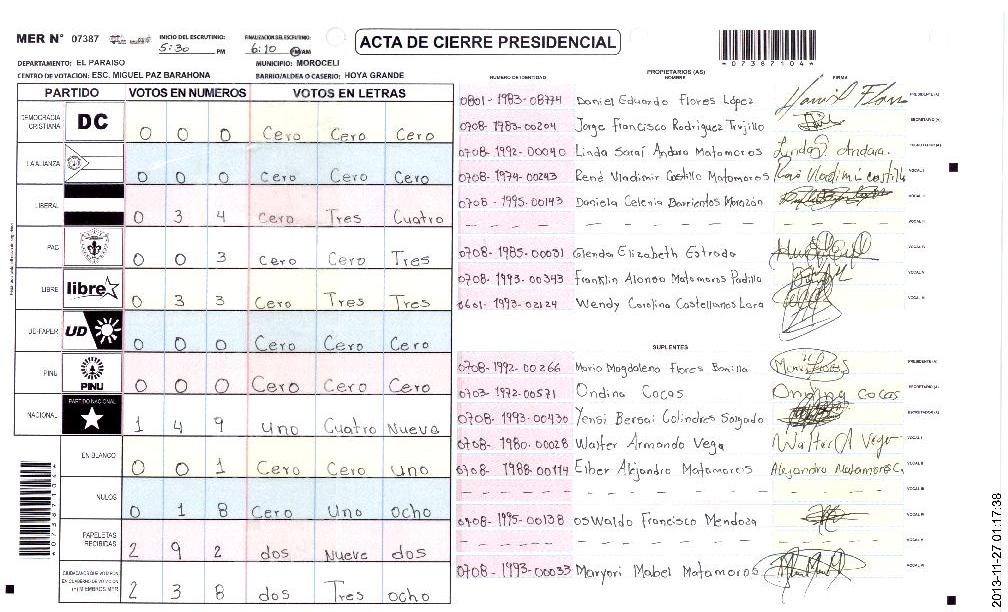 MER N° 07387
INICIO DEL ESCRUTINIO: 5:30 PM
FINALIZACION DEL ESCRUTINIO: 6:10 PM/AM
ACTA DE CIERRE PRESIDENCIAL
*07387104*
DEPARTAMENTO: EL PARAISO MUNICIPIO: MOROCELI
CENTRO DE VOTACION: ESC. MIGUEL PAZ BARAHONA BARRIO/ALDEA O CASERIO: HOYA GRANDE
PARTIDO VOTOS EN NUMEROS VOTOS EN LETRAS
DEMOCRACIA CRISTIANA DC 0 0 0 Cero Cero Cero
LA ALIANZA 0 0 0 Cero Cero Cero
LIBERAL 0 3 4 Cero Tres Cuatro
PAC 0 0 3 Cero Cero Tres
LIBRE libre 0 3 3 Cero Tres Tres
UD-FAPER UD 0 0 0 Cero Cero Cero
PINU PINU 0 0 0 Cero Cero Cero
NACIONAL PARTIDO NACIONAL 1 4 9 Uno Cuatro Nueve
EN BLANCO 0 0 1 Cero Cero Uno
NULOS 0 1 8 Cero Uno Ocho
PAPELETAS RECIBIDAS 2 9 2 dos Nueve dos
CIUDADANOS QUE VOTARON EN CUADERNO DE VOTACION (+) MIEMBROS MER 2 3 8 dos Tres ocho
*07387104*
PROPIETARIOS (AS)
NUMERO DE IDENTIDAD NOMBRE FIRMA
0801-1983-08774 Daniel Eduardo Flores López PRESIDENTE (A)
0708-1983-00204 Jorge Francisco Rodriguez Trujillo SECRETARIO (A)
0708-1992-00040 Linda Sarai Andara Matamoros Linda S Andara.
0708-1974-00243 René Vladimir Castillo Matamoros Vladimir Castillo VOCAL I
0708-1995-00143 Daniela Celenia Barrientos Morazón VOCAL II
VOCAL III
0708-1985-00031 Glenda Elizabeth Estrada
0708-1993-00343 Franklin Alonso Matamoros Padilla
0601-1993-02124 Wendy Carolina Castellanos Lara
SUPLENTES
0708-1992-00266 Mario Magdaleno Flores Bonilla PRESIDENTE (A)
0703-1972-00571 Ondina Cocas Ondina Cocas SECRETARIO (A)
0708-1993-00430 Yensi Bersai Colindres Salgado
0708-1980-00028 Walter Armando Vega Walter A Vega VOCAL I
0708-1988-00114 Elber Alejandro Matamoros Alejandro Matamoros VOCAL II
VOCAL III
0708-1995-00138 osWaldo Francisco Mendoza
0708-1993-00033 Maryori Mabel Matamoros
2013-11-27 01:17:38